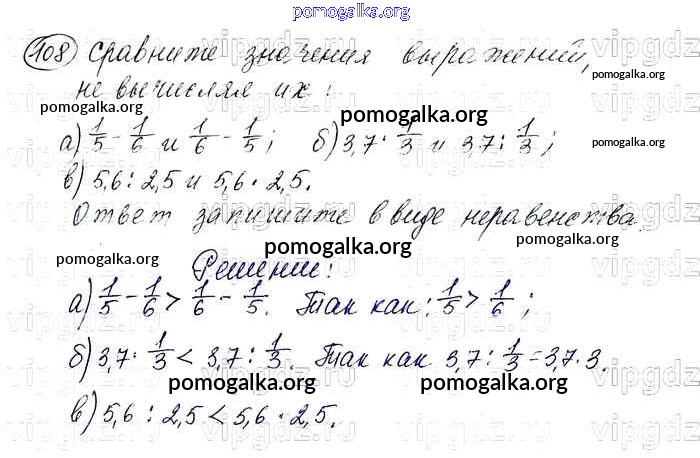 pomogalka.org
108 Сравните значения выражений,
не вычисляя их:
pomogalka.org
pomogalka.org
а) 1/5 - 1/6 и 1/6 - 1/5; б) 3,7 · 1/3 и 3,7 : 1/3;
pomogalka.org
pomogalka.org
в) 5,6 : 2,5 и 5,6 · 2,5.
Ответ запишите в виде неравенства.
pomogalka.org
pomogalka.org
Решение:
pomogalka.org
а) 1/5 - 1/6 > 1/6 - 1/5. Так как: 1/5 > 1/6;
б) 3,7 · 1/3 < 3,7 : 1/3. Так как 3,7 : 1/3 = 3,7 · 3.
pomogalka.org pomogalka.org
в) 5,6 : 2,5 < 5,6 · 2,5.